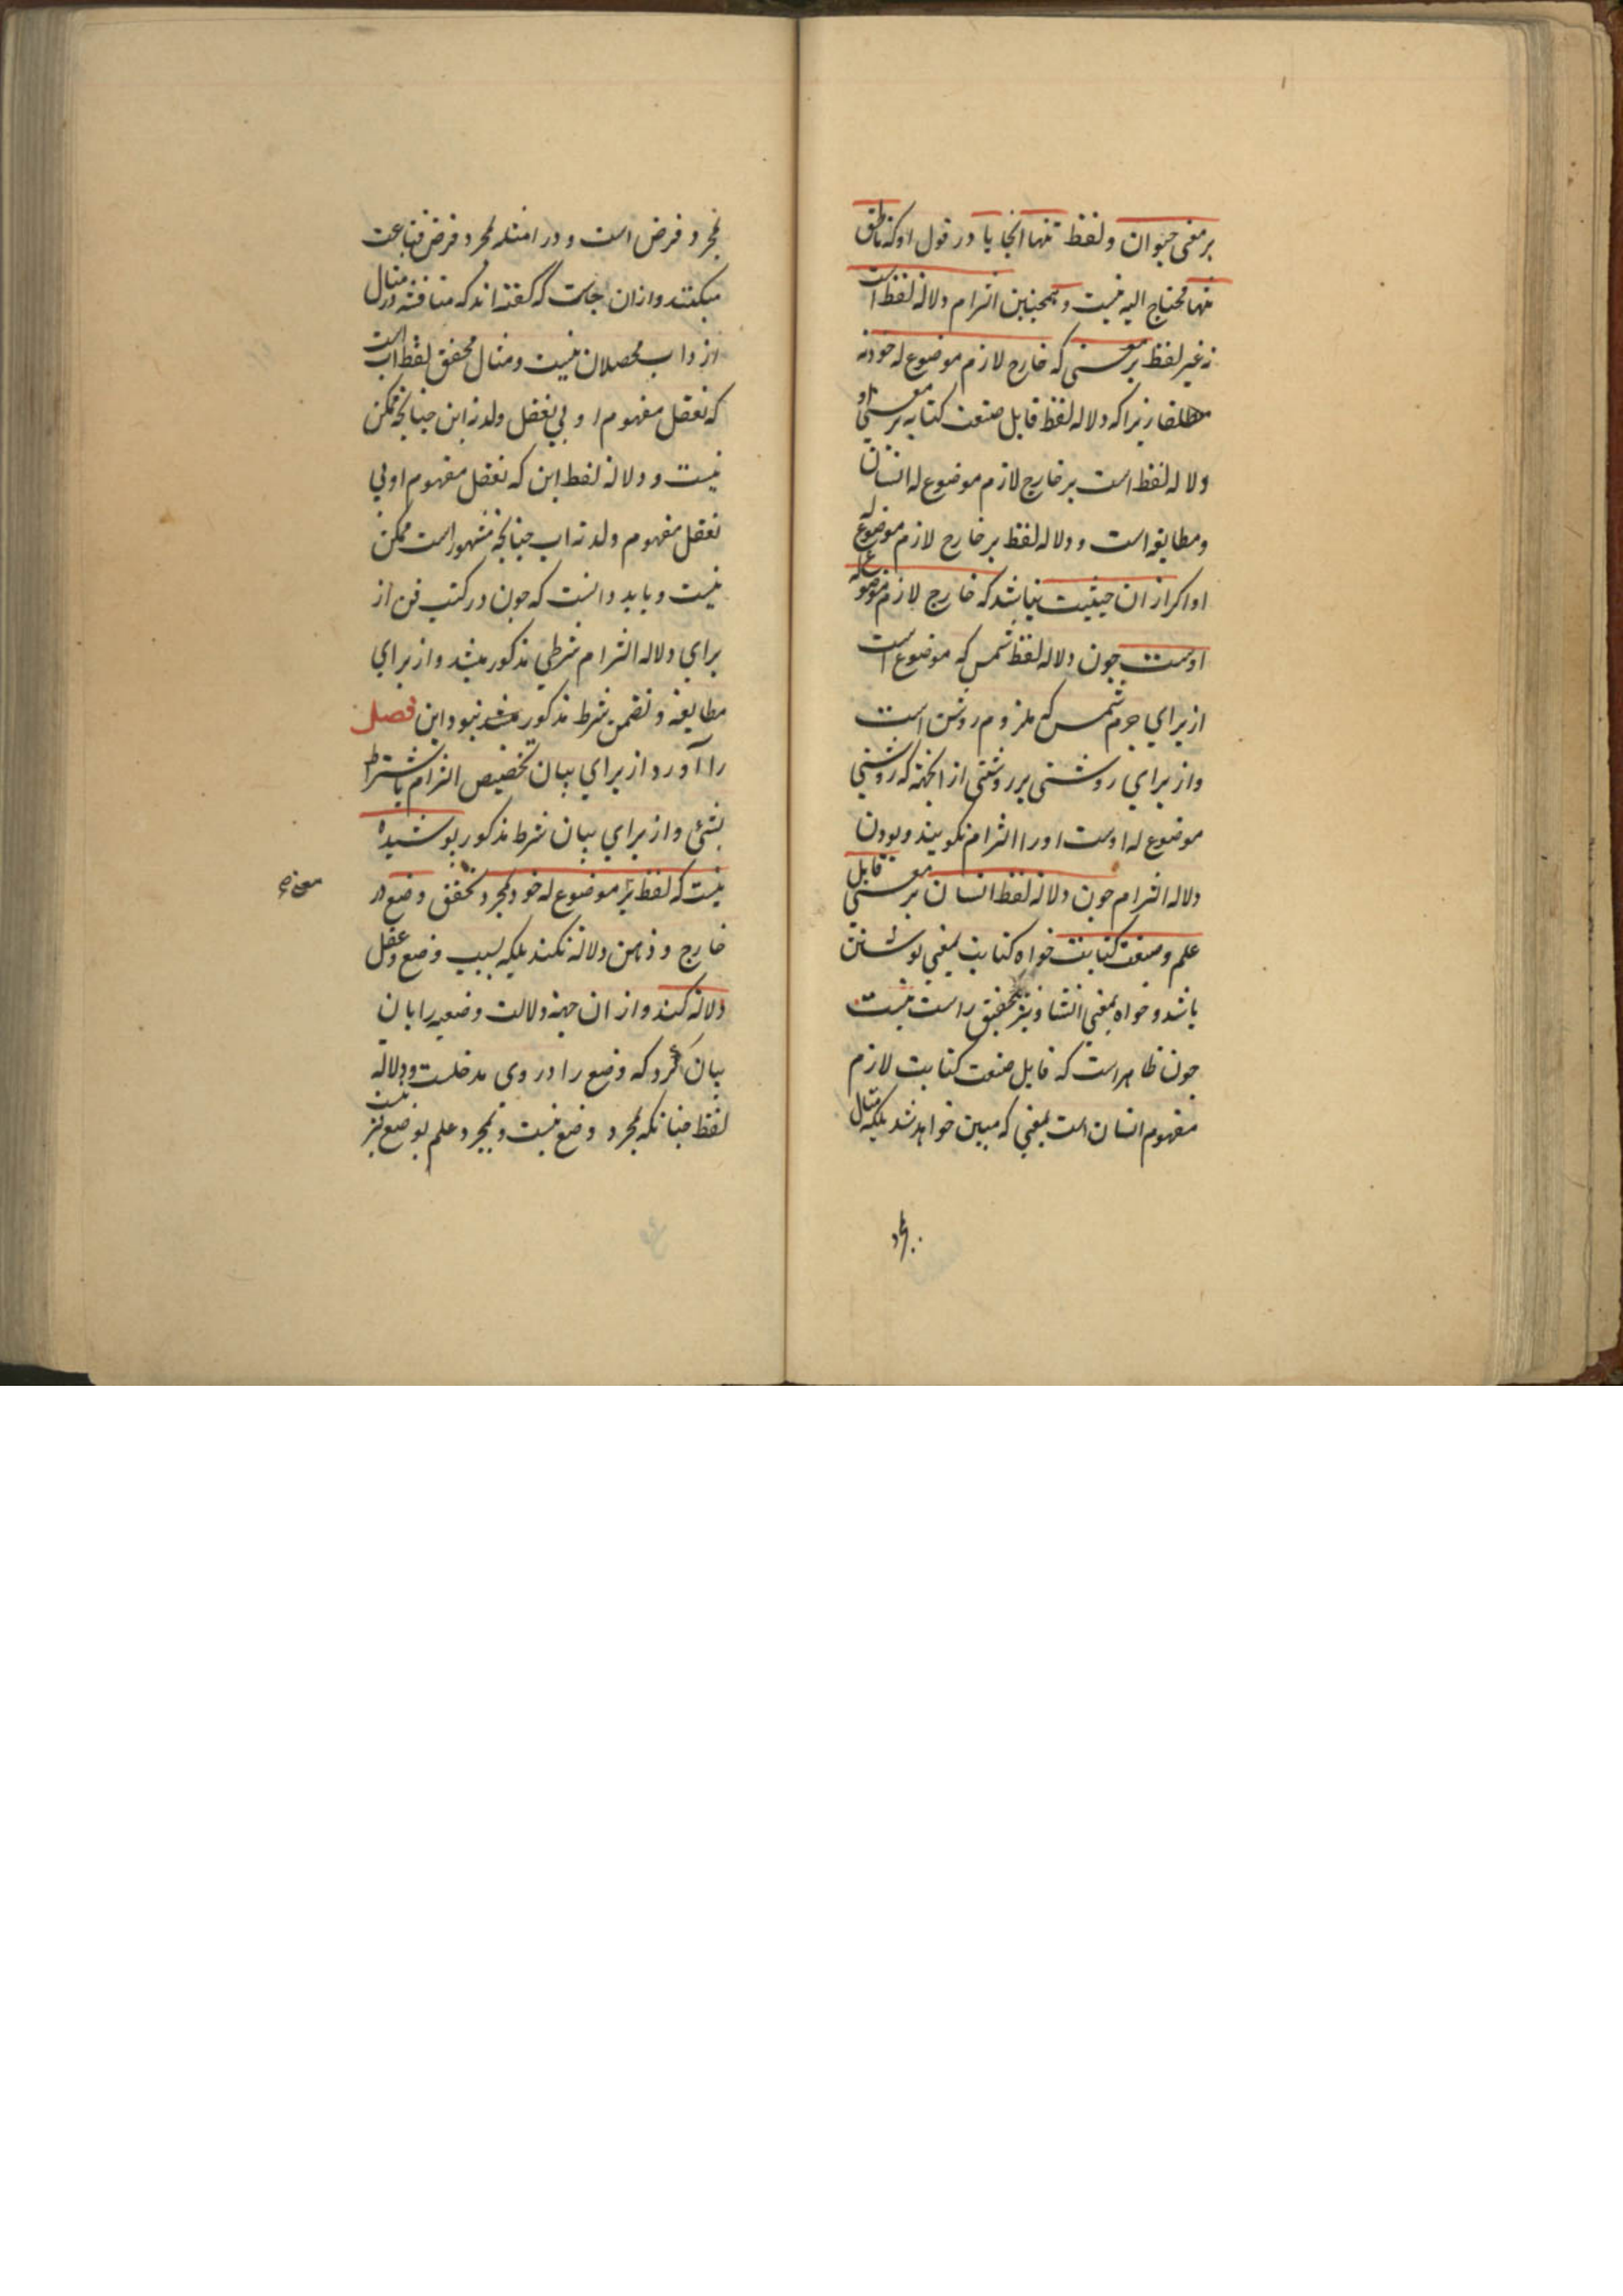 بر معنی حیوان و لفظ تنها اینجا یا در قول او که ناطق
تنها محتاج الیه نیست و همچنین التزام دلاله لفظ است
نه غیر لفظ بر معنی که خارج لازم موضوع له خود نه
مطلقا زیرا که دلاله لفظ قابل صنعت کتابه بر معنی او
دلاله لفظ است بر خارج لازم موضوع له انسان
و مطابقه است و دلاله لفظ بر خارج لازم موضوع له
او اگر از ان حیثیت نباشد که خارج لازم موضوع له
اوست چون دلاله لفظ شمس که موضوع است
از برای جرم شمس که ملزوم روشن است
و از برای روشنی بر روشنی از انجهة که روشنی
موضوع له اوست او را التزام نکویند و بودن
دلاله التزام چون دلالة لفظ انسان بر معنی قابل
علم و صنعت کتابت خواه کتابت بمعنی نوشتن
باشد و خواه بمعنی انشا و نیز تحقیق راست نیست
چون ظاهر است که قابل صنعت کتابت لازم
مفهوم انسان است بمعنی که مبین خواهد شد بلکه مثال
بمجرد
بمجرد فرض است و در امثله بمجرد فرض قناعت
میکنند و از ان جاست که گفته اند که مناقشه در مثال
از داب محصلان نیست و مثال محقق لفظ اب است
که تعقل مفهوم او بی تعقل ولد نه ابن چنانچه ممکن
نیست و دلالة لفظ ابن که تعقل مفهوم او بی
تعقل مفهوم ولد نه اب چنانچه مشهور است ممکن
نیست و باید دانست که چون در کتب فن از
برای دلاله التزام شرطی مذکور میشد و از برای
مطابقه و تضمن شرط مذکور نبود این فصل
را آورد از برای بیان تخصیص التزام باشتراط
بشئ و از برای بیان شرط مذکور پوشیده
نیست که لفظ بر موضوع له خود بمجرد تحقق وضع در
خارج و ذهن دلالة نکند بلکه بسبب وضع و عقل
دلالة کند و از ان جهة دلالت وضعیه را بان
بیان کرد که وضع را در وی مدخلست و دلالة
لفظ چنانکه بمجرد وضع نیست و بمجرد علم بوضع نیز نیست